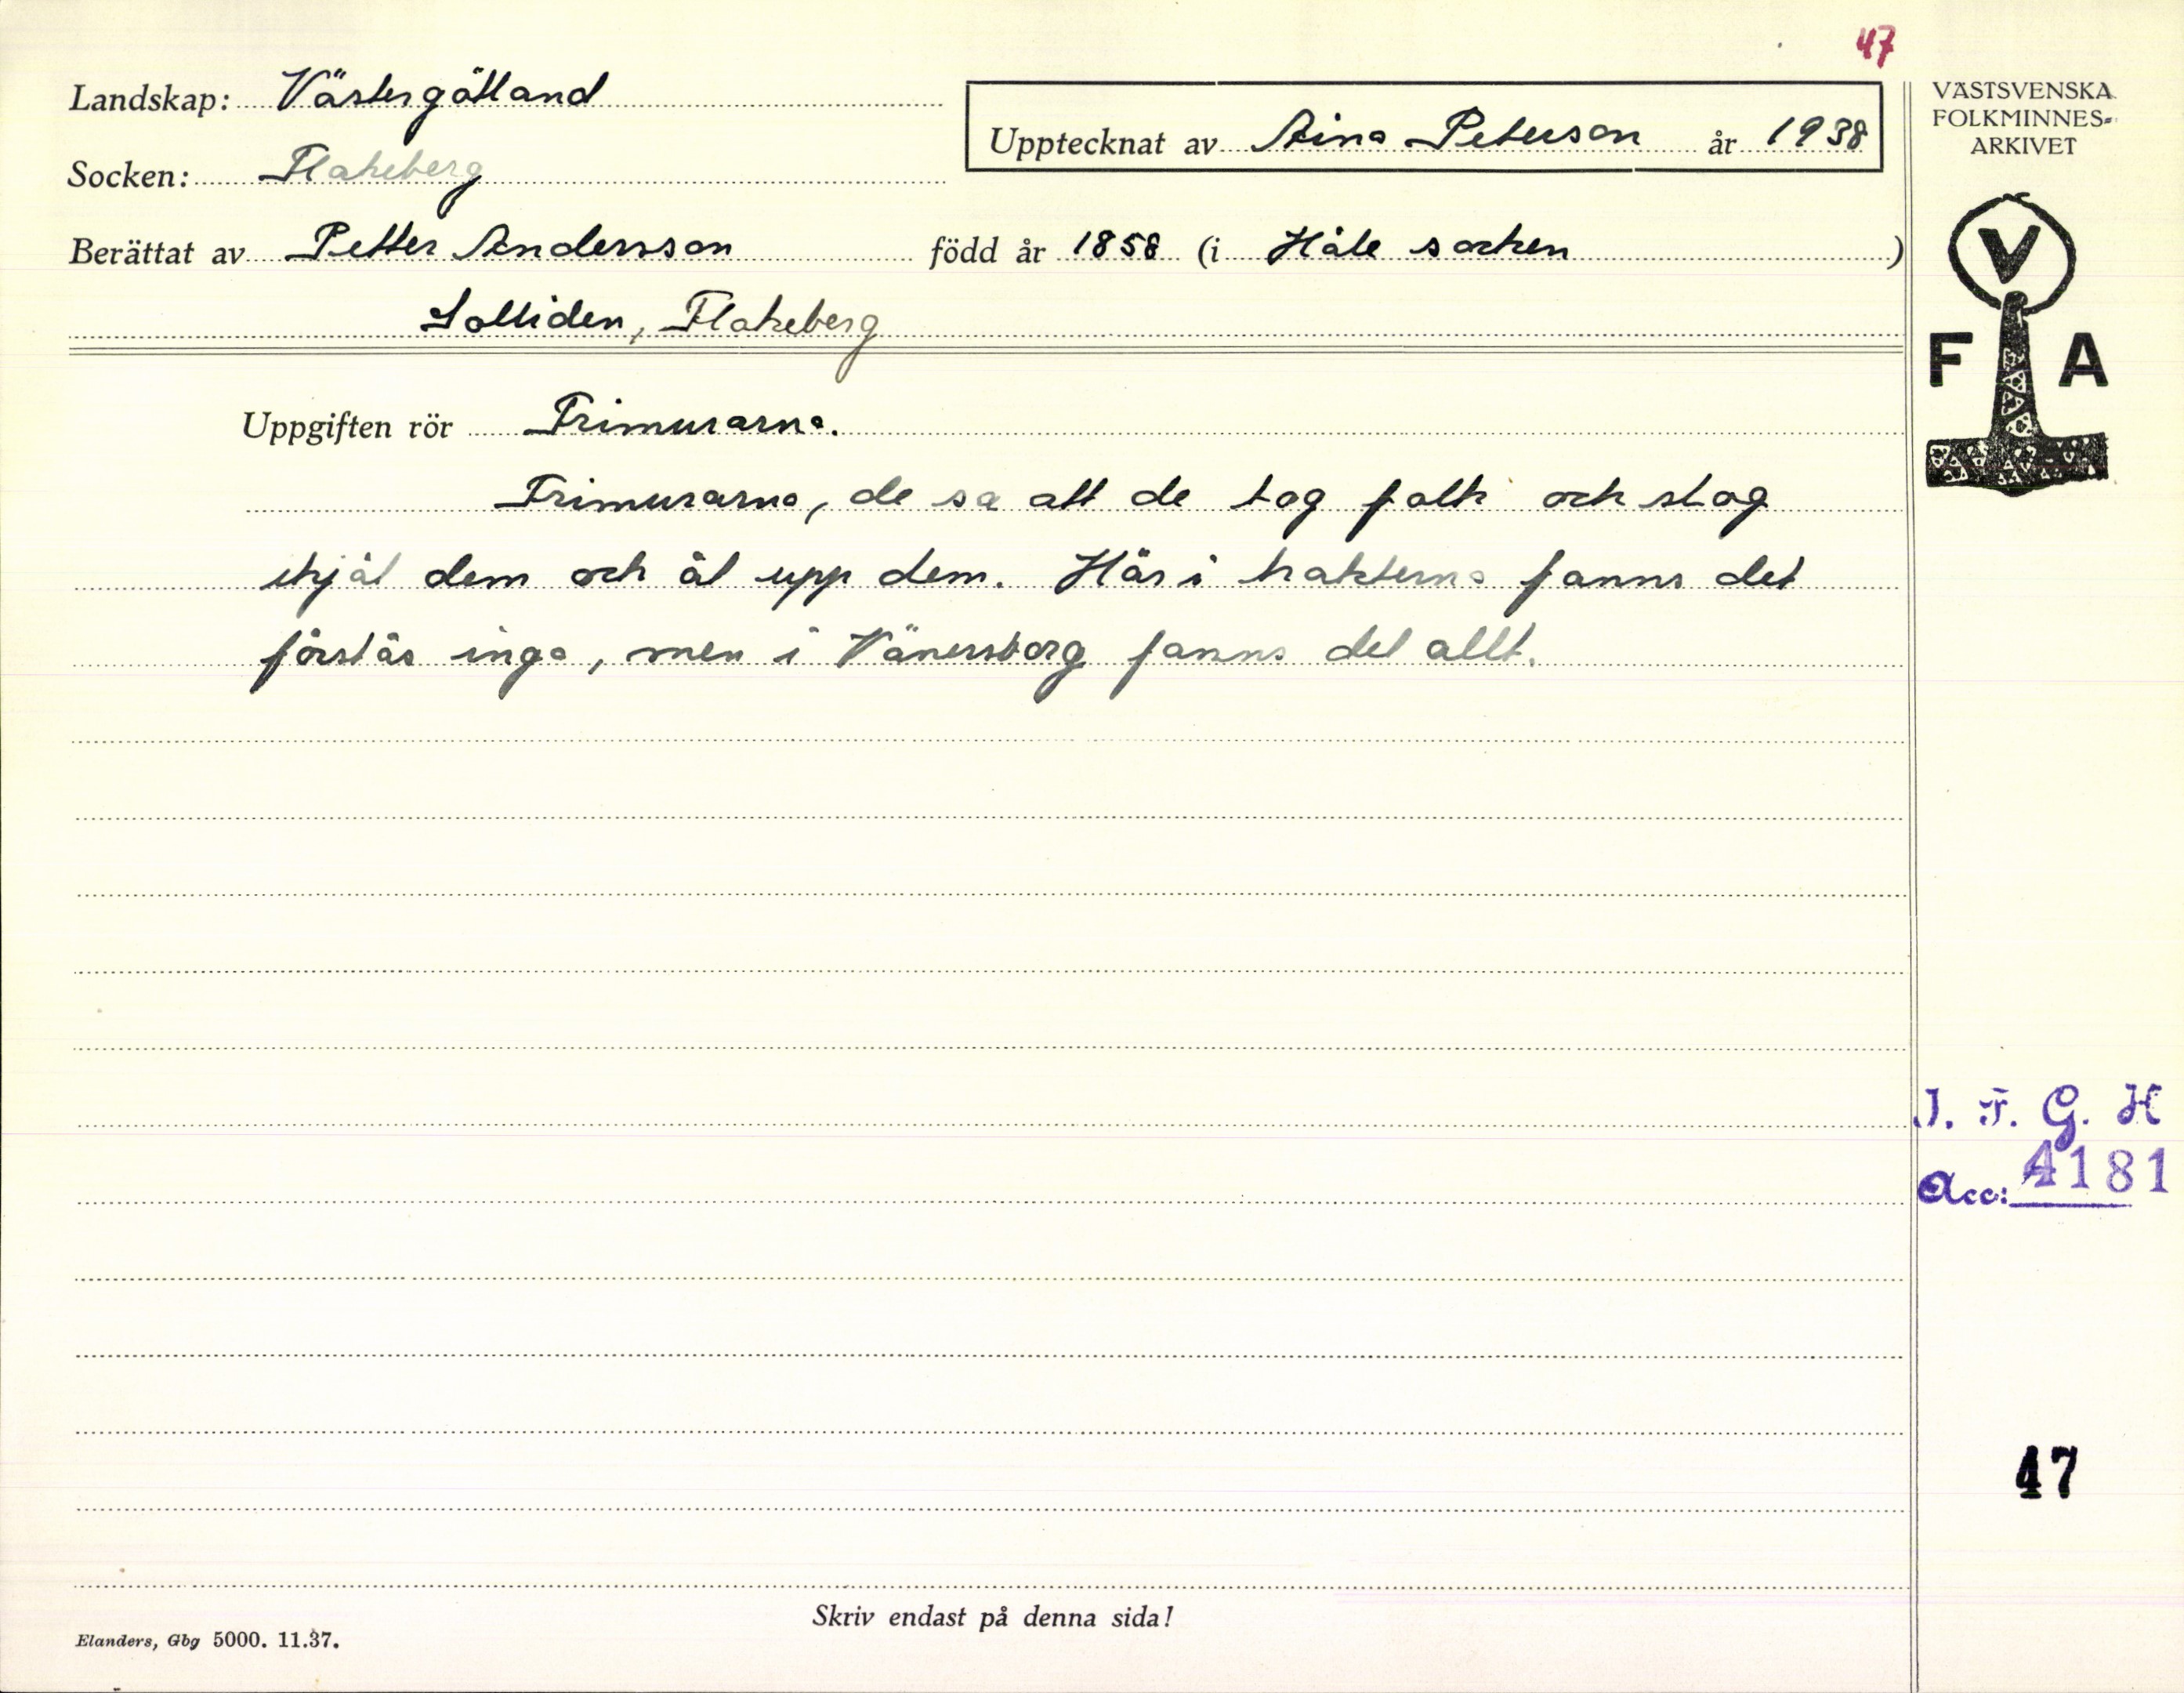 47
Landskap: Västergötland
Upptecknat av Aina Peterson år 1938
VÄSTSVENSKA
FOLKMINNES-
ARKIVET
Socken: Flakeberg
Berättat av Petter Andersson född år 1858 (i Håle socken)
Solliden, Flakeberg
V
F A
Uppgiften rör Frimurarna.
Frimurarna, de sa att de tog folk och slog
ihjäl dem och åt upp dem. Här i trakterna fanns det
förstås inga, men i Vänersborg fanns det allt.
I. F. G. H
Acc: 4181
47
Skriv endast på denna sida!
Elanders, Gbg 5000. 11.37.